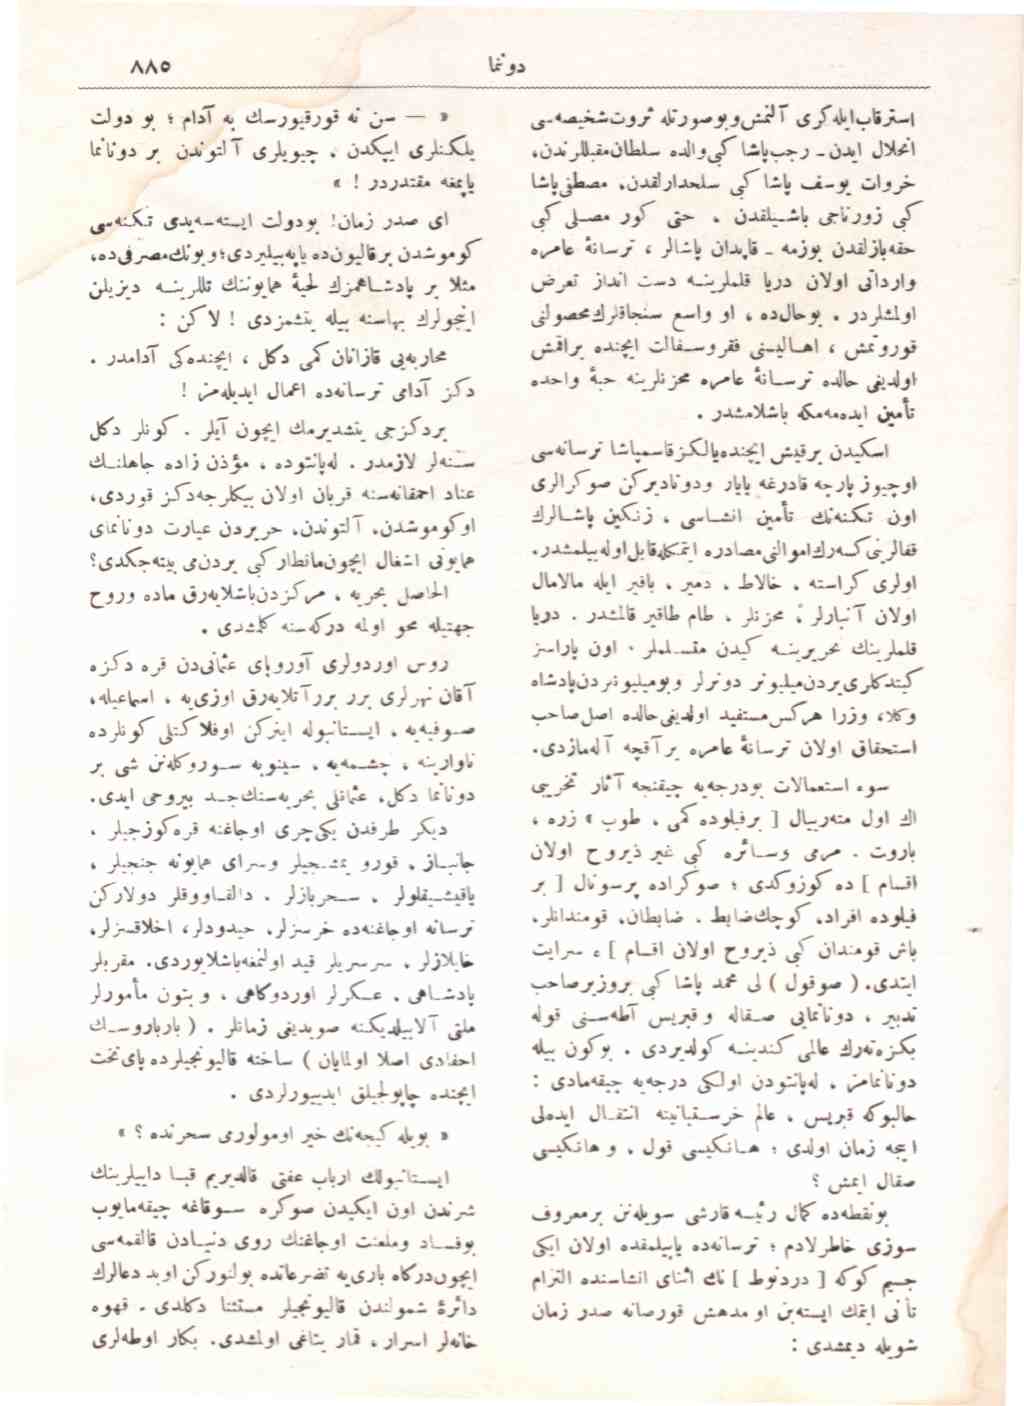 دوننما
٨٨٥
استرقاب ایله کری آلنمش و بو صورتله ثروت شخصیه‌سی
انحلال ایدن ـ رجب پاشا کبی والده سلطان مقبللرندن،
خروات یوسف پاشا کبی سلحدارلقدن، مصطفی پاشا
کبی زورناجی باشیلقدن ، حتی کور مصلی کبی
حقه‌بازلقدن بوزمه ـ قاپدان پاشالر ، ترسانهٔ عامره
وارداتی اولان دریا قلملرینه دست انداز تعرض
اولمشلردر . بوحال‌ده ، او واسع سنجاقلرك محصولنی
قوروتمش ، اهالیسنی فقر وسفالت ایچنده براقمش
اولدیغی حالده ترسانهٔ عامره مخزنلرینه حبهٔ واحده
تأمین ایده‌مه‌مکه باشلامشدر .
اسکیدن بر قیش ایچنده یالکز قاسمپاشا ترسانه‌سی
اوچیوز پارچه قادرغه یاپار ودوناديرکن صوکرالری
اون تکنه‌نك تأمین انشاسی ، زنکین پاشالرك
قفالرینی کسه‌رك اموالنی مصادره ایتمکله قابل اوله‌بیلمشدر.
اولری کراسته ، خالاط ، دمیر ، باقیر ایله مالامال
اولان آنبارلر ، مخزنلر ، طام طاقیر قالمشدر . دریا
قلملرینك تحریرینه کیدن مقسملر ، اون پاراسز
کیتدکلری یردن میلیونر دونرلر و بو میلیونردن پادشاه
وکلا، وزرا هرکس مستفید اولدیغی حالده اصل صاحب
استحقاق اولان ترسانهٔ عامره بر آقچه آله‌مازدی.
سوء استعمالات بودرجه‌یه چیقنجه آثار تخریبی
اك اول مته‌ریال [ بر فیلوده کمی ، طوب ، زره ،
باروت ، مرمی وسائره کبی غیر ذیروح اولان
اقسام ] ده کوزوکدی ؛ صوکراده پرسونال [ بر
فیلوده افراد، کوچك ضابط ، ضابطان، قوماندانلر،
باش قوماندان کبی ذیروح اولان اقسام ] ه سرایت
ایتدی. ( صوقوللی ) لی محمد پاشا کبی بر وزیر صاحب
تدبیر ، دونانمایی صقاله و قبریس آطه‌سنی قوله
بکزه‌ته‌رك عالمی کندینه کولدیردی . بوکون بیله
دونانمامز ، له‌پانتودن اولکی درجه‌یه چیقه‌مادی :
حالبوکه قبریس ، عالم خرستیانیته انتقال ایده‌لی
ایجه زمان اولدی ؛ هانکیسی قول ، و هانکیسی
صقال ایمش ؟
بونقطه‌ده کمال رئیسه قارشی سویله‌نن بر معروف
سوزی خاطرلادم ؛ ترسانه‌ده یاپیلمقده اولان ایکی
جسیم کوکه [ دردنوط ] نك اثنای انشاسنده التزام
تأنی ایتمك ایسته‌ین او مدهش قورصانه صدر زمان
شویله دیمشدی :
« — سن نه قورقیورسك به آدام ؛ بو دولت
یلکنلری ایپکدن ، چیویلری آلتوندن بر دونانما
یاپمغه مقتدردر ! »
ای صدر زمان! بودولت ایسته‌سه‌یدی تکنه‌سی
کوموشدن بر قالیون ده یاپه‌بیلیردی؛ وبونك مصرفی ده،
مثلا بر پادشاهمزك لحیهٔ همایوننك تللرینه دیزیلن
اینجولرك بهاسنه بیله یتشمزدی ! لاکن :
محاربه‌یی قازانان کمی دکل ، ایچنده‌کی آدامدر .
دکز آدامی ترسانه‌ده اعمال ایدیله‌مز !
بر دکزجی یتشدیرمك ایچون آیلر ، کونلر دکل
سنه‌لر لازمدر . له‌پانتوده ، مؤذن زاده جاهلنك
عناد احمقانه‌سنه قربان اولان بیکلرجه دکز قوردی،
او کوموشدن، آلتوندن، حریردن عبارت دونانمای
همایونی اشغال ایچون مانطار کبی یردن می بیته‌جکدی؟
الحاصل بحریه ، مرکزدن باشلایه‌رق ماده وروح
جهتیله محو اولمه درکه‌سنه کلمشدی .
روس اوردولری آوروپای عثمانی‌دن قره دکزه
آقان نهرلری برر برر آتلایه‌رق اوزی‌یه ، اسماعیله،
صوفیه‌یه ، ایستانبوله اینرکن اوفلاکتلی کونلرده
ناوارینه ، چشمه‌یه ، سینوبه سوروکله‌نن شی بر
دونانما دکل، عثمانلی بحریه‌سنك جسد بیروحی ایدی.
دیکر طرفدن یکی‌چری اوجاغنه قره‌کوزجیلر ،
جانباز ، قورو یمشجیلر وسرای همایونه جنجیلر ،
یاقیشیقلولر ، سحربازلر ، دالقاووقلر دولارکن
ترسانه اوجاغنه‌ده خرسزلر، حیدودلر، اخلاقسزلر،
خایلازلر ، سرسریلر قید اولنمغه باشلایوردی. مقربلر
پادشاهی ، عسکرلر اوردوکاهی ، و بتون مأمورلر
ملتی آلابیلدیکنه صویدیغی زمانلر ، ( بارباروسك
احفادی اصلا اولمایان ) ساخته قالیونجیلرده پای تخت
ایچنده چاپولجیلق ایدییورلردی .
« بویله کیجه‌نك خیر اومولوری سحرنده ؟ »
ایستانبولك ارباب عفتی قالدیریم قبا داییلرینك
شرندن اون ایکیدن صوکره سوقاغه چیقه‌مایوب
بوفساد وملعنت اوجاغنك روی دنیادن قالقمه‌سی
ایچون درکاه باری‌یه تضرعاتده بولنورکن اوبد دعالرك
دائرهٔ شمولندن قالیونجیلر مستثنا دکلدی . قهوه
خانه‌لر اسرار ، قمار یتاغی اولمشدی. بکار اوطه‌لری